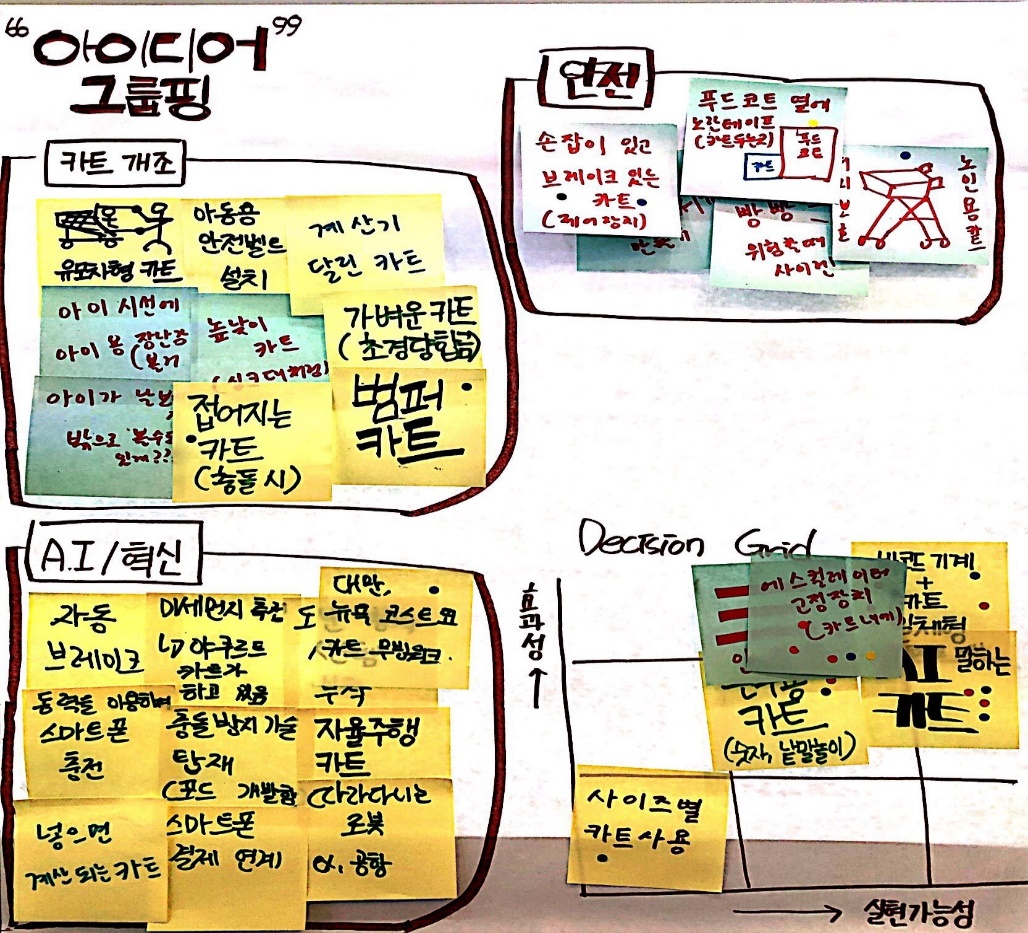 "아이디어"
그룹핑
카트 개조
유모차형 카트
아동용
안전벨트
설치
계산기
달린 카트
아이 시선에
아이 용 장난감
높낮이
카트
(싱크대처럼)
가벼운 카트
(초경량합금)
아이가
밖으로 볼수도
있게??
접어지는
카트
(충돌 시)
범퍼
카트
안전
손잡이 있고
브레이크 있는
카트
(제어장치)
푸드코트 옆에
노란테이프
(카트두는지)
푸드
코트
카트
빵빵
위험할때
사이렌
노인용 카트
A.I/혁신
자동
브레이크
미세먼지 측정
나 야쿠르트
카트가
하고 있음
대만,
뉴욕 코스트코
카트 무빙워크.
동력을 이용하여
스마트폰
충전
충돌방지 기술
탑재
(포드 개발함
자율주행
카트
(따라다시는
로봇
ex. 공항
넣으면
계산 되는 카트
스마트폰
결제 연계
Decision Grid
효과성
에스컬레이터
고정장치
(카트 내에)
바코드 기계
+
카트
일체형
카트
(숫자, 낱말놀이)
AI 말하는
카트
사이즈별
카트 사용
실현가능성